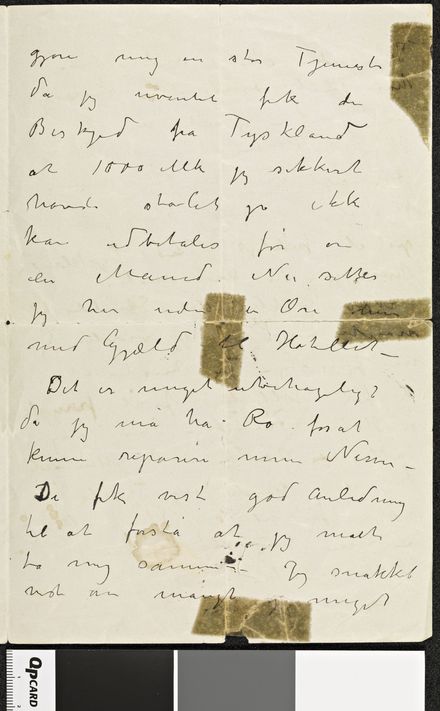 gjøre mig en stor Tjeneste
da jeg uventet fik den
Beskjed fra Tyskland
at 1000 Mk jeg sikkert
havde stolet på ikke
kan udbetales før om
en Maaned. Nu sidder
jeg her uden en Øre
med Gjæld til Hotellet –
Det er meget ubehageligt
da jeg må ha Ro forat
kunne reparere mine Nerver –
De fik vist god Anledning
til at forstå at jeg måtte
ta mig sammen – Jeg snakket
vist om mangt og meget
QP CARD